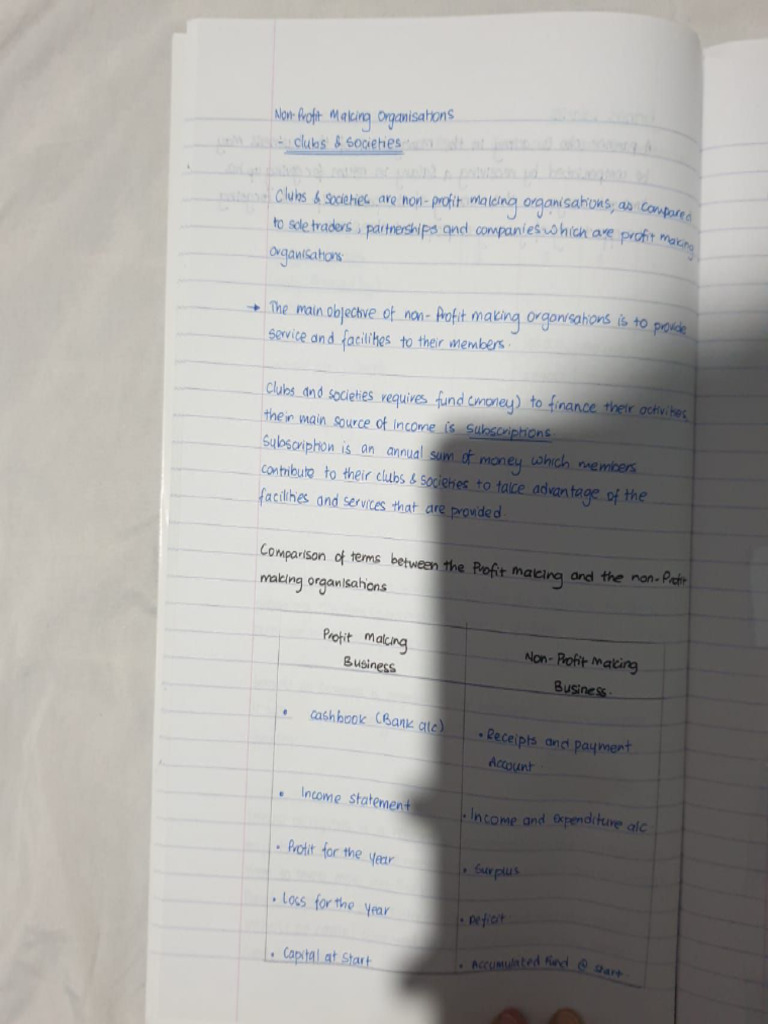 Non-Profit Making Organisations
- Clubs & Societies
Clubs & societies are non-profit making organisations, as compared
to sole traders, partnerships and companies which are profit making
organisations.
→ The main objective of non-Profit making organisations is to provide
service and facilities to their members.
Clubs and societies requires fund (money) to finance their activities,
their main source of income is subscriptions
Subscription is an annual sum of money which members
contribute to their clubs & societies to take advantage of the
facilities and services that are provided.
Comparison of terms between the Profit making and the non-Profit
making organisations
Profit making
Business
Non-Profit making
Business.
• cashbook (Bank a/c)
• Receipts and payment
Account.
• Income statement
• Income and expenditure a/c
• Profit for the year
• Surplus
• Loss for the year
• Deficit
• Capital at start
• Accumulated Fund @ start.